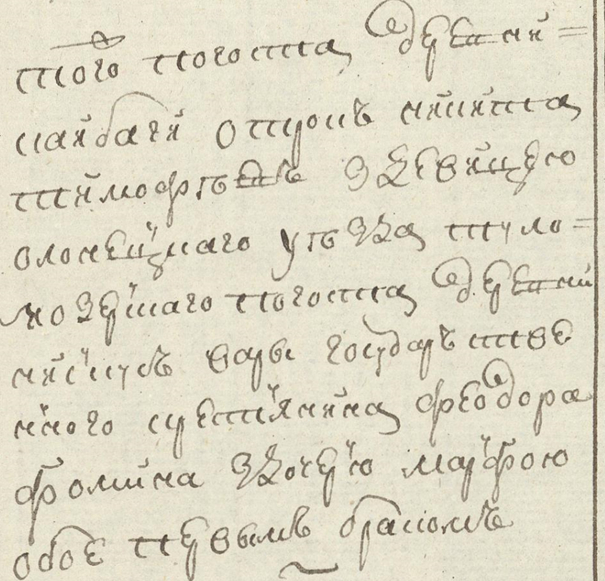 того погоста деревни=
кайбаги отрокъ никита
тимофѣевъ здевицею
олонецкаго уѣзда туло=
мозерскаго погоста деревни
вары государстве
нного крестьянина феодора
фомина здочерью марфою
обое первымъ бракомъ